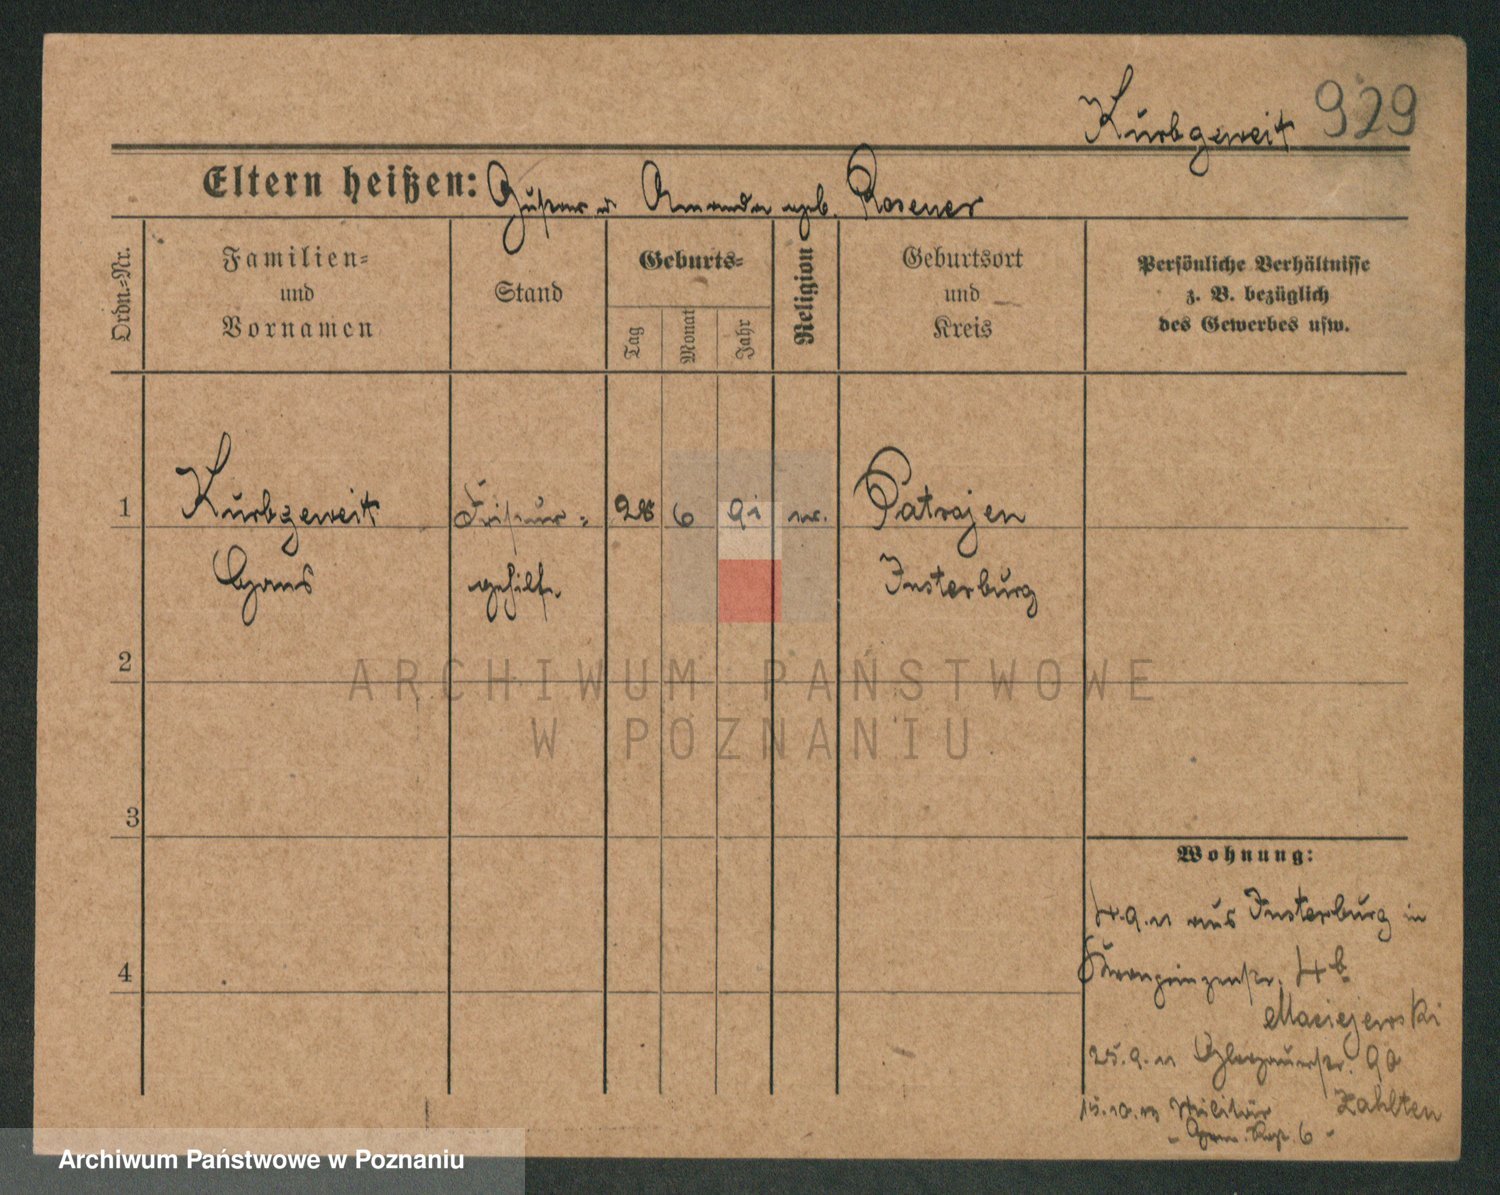 Kurbgeweit 929
Eltern heißen: Gustav u Amanda geb. Rosener
Ordn.-Nr.
Familien-
und
Vornamen
Stand
Geburts-
Tag
Monat
Jahr
Religion
Geburtsort
und
Kreis
Persönliche Verhältnisse
z. B. bezüglich
des Gewerbes usw.
1 Kurbgeweit Friseur- 28 6 91 Patrajen
Hans gehilfe Insterburg
2
3
4
Wohnung:
4.9.11 aus Insterburg in
Kronprinzenstr. 4b
Maciejewski
25.9.11 90
Zahlten
15.10.11 Militär
6
ARCHIWUM PAŃSTWOWE
W POZNANIU
Archiwum Państwowe w Poznaniu